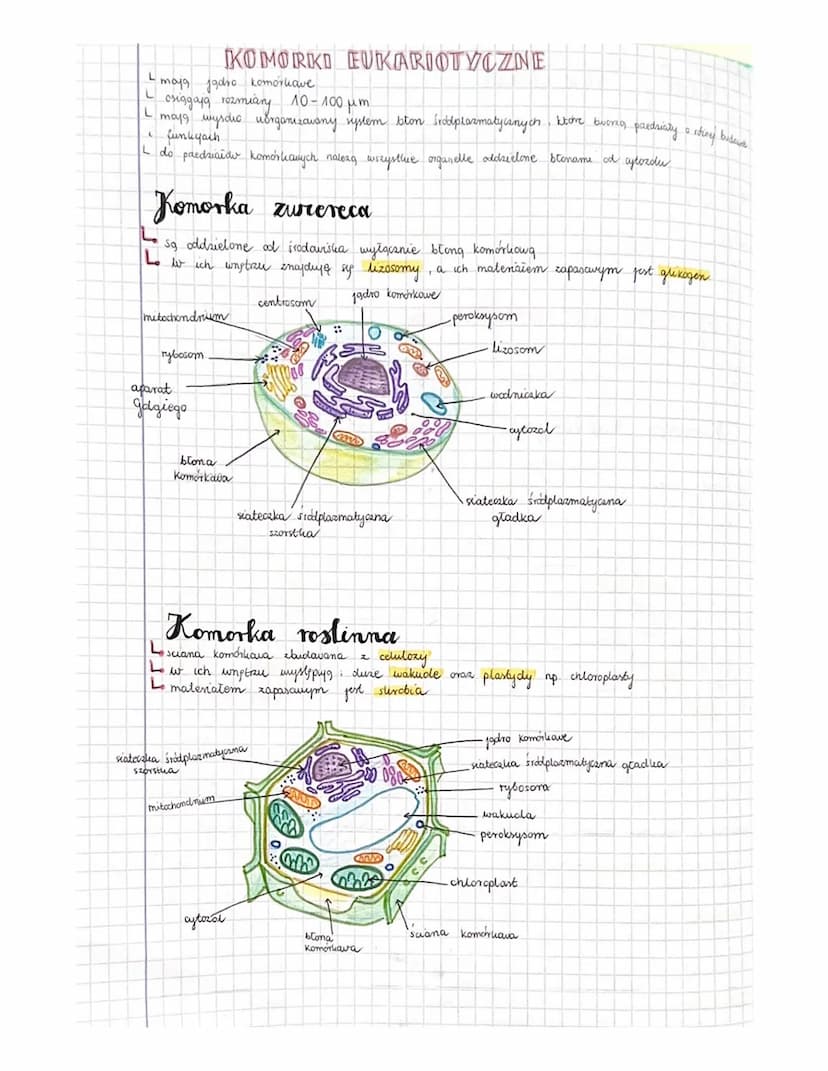 KOMÓRKI EUKARIOTYCZNE
mają jądro komórkowe
osiągają rozmiary 10-100 μm
mają wysoko uorganizowany system błon śródplazmatycznych, które tworzą przedziały o różnej budowie
i funkcjach
do przedziałów komórkowych należą wszystkie organelle oddzielone błonami od cytozolu
Komorka zwierzęca
są oddzielone od środowiska wyłącznie błoną komórkową
w ich wnętrzu znajdują się lizosomy, a ich materiałem zapasowym jest glikogen
jądro komórkowe
centrosom
mitochondrium
peroksysom
rybosom
lizosom
aparat
Golgiego
wodniczka
cytozol
błona
komórkowa
siateczka śródplazmatyczna
gładka
siateczka śródplazmatyczna
szorstka
Komorka roslinna
ściana komórkowa zbudowana z celulozy
w ich wnętrzu występują: duże wakuole oraz plastydy np. chloroplasty
materiałem zapasowym jest skrobia
jądro komórkowe
siateczka śródplazmatyczna
szorstka
siateczka śródplazmatyczna gładka
rybosom
mitochondrium
wakuola
peroksysom
chloroplast
cytozol
błona
komórkowa
ściana komórkowa